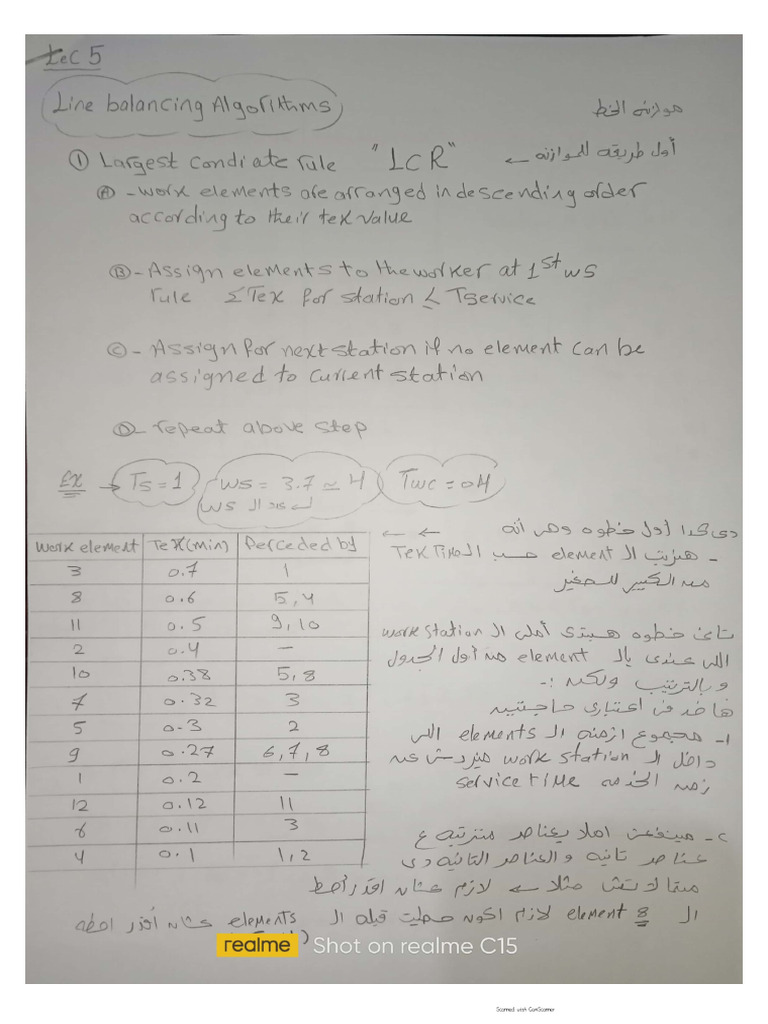 Lec 5
Line balancing Algorithms
موازنه الخط
① Largest condiate rule "LCR" ← أول طريقه للموازنه
Ⓐ - work elements are arranged in descending order
according to their tex value
Ⓑ - Assign elements to the worker at 1st ws
rule ΣTex for station ≤ Tservice
Ⓒ - Assign for next station if no element can be
assigned to current station
Ⓓ - repeat above step
Ex → Ts = 1 ws = 3.7 ≃ 4 Twc = 04
عدد ال ws
work element Tex(min) Perceded by
3 0.7 1
8 0.6 5,4
11 0.5 9,10
2 0.4 -
10 0.38 5,8
7 0.32 3
5 0.3 2
9 0.27 6,7,8
1 0.2 -
12 0.12 11
6 0.11 3
4 0.1 1,2
دى كدا أول خطوه وهى انه ← ←
- هنرتب ال element حسب ال Tek Time
من الكبير للصغير
تانى خطوه هبتدى أملى ال work station
اللى عندى بال element من أول الجدول
و بالترتيب ولكن :-
هاخد فى اعتبارى حاجتين
1- مجموع ازمنه ال elements اللى
داخل ال work station ميزدش عن
زمن الخدمه service time
2- مينفعش املا بعناصر مترتبه ع
عناصر تانيه والعناصر التانيه دى
متملاتش مثلا ← لازم عشان اقدر أحط
ال element 8 لازم اكون حطيت قبله ال elements عشان أقدر احطه
realme Shot on realme C15
Scanned with CamScanner